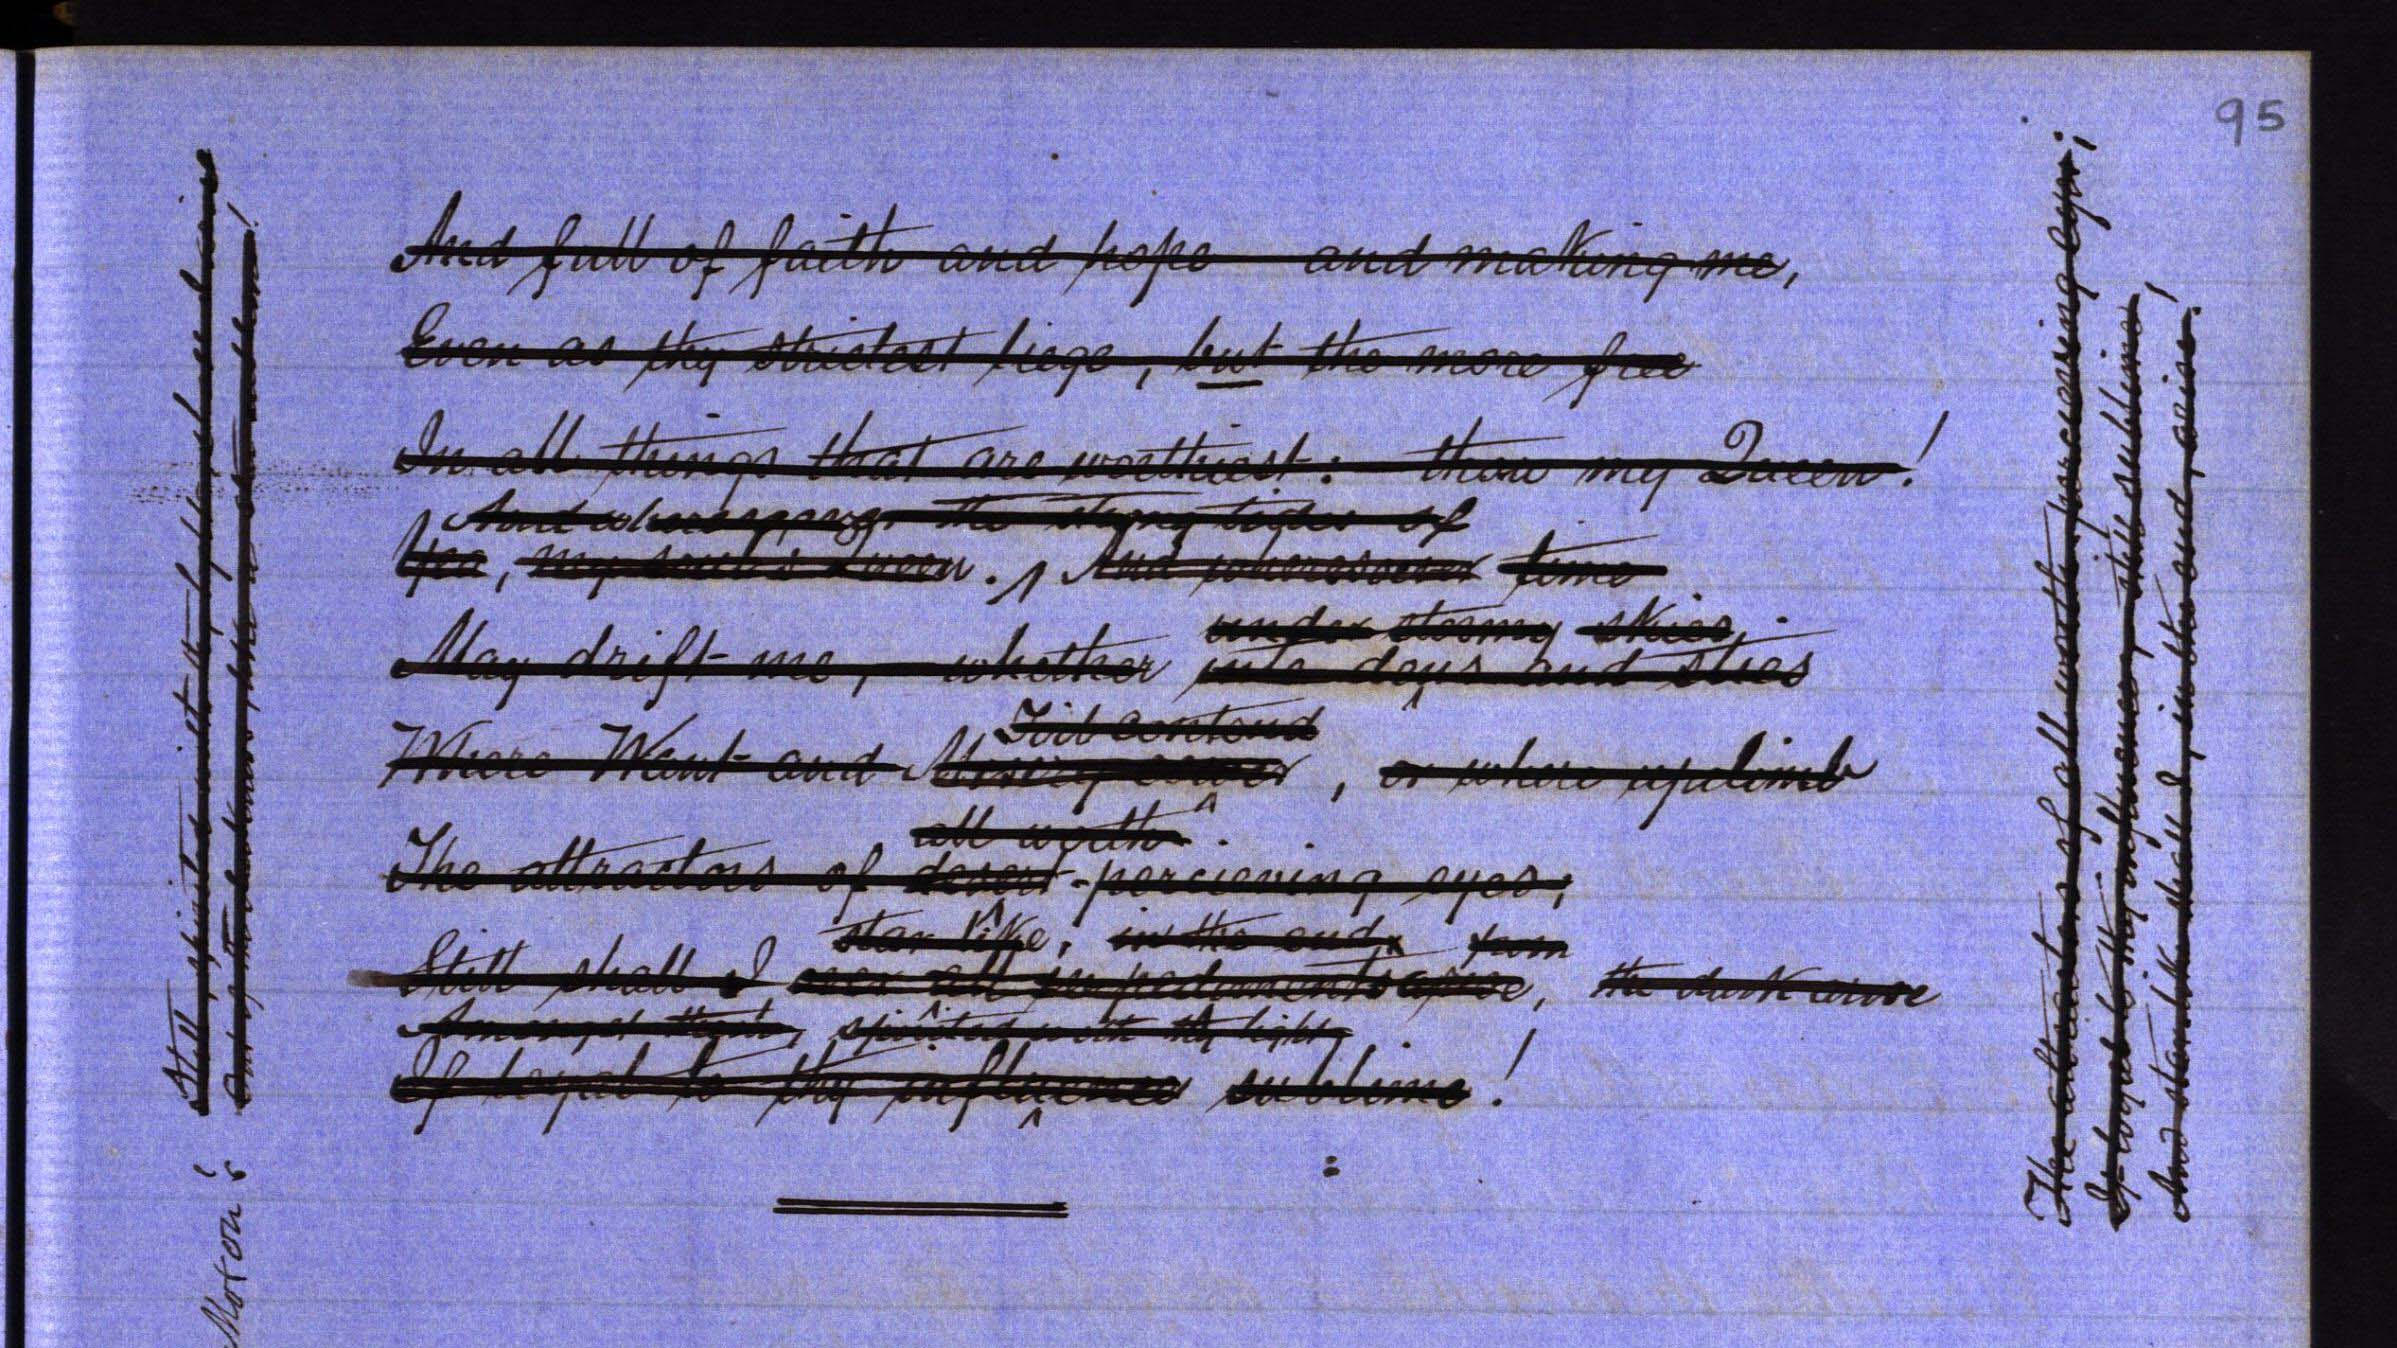 95
And full of faith and hope and making me,
Even as thy strictest liege, but the more free
In all things that are worthiest: thou my Queen!
And wheresoever the stormy tides of
Yea, my soul's Queen. And wheresoever time
under stormy skies,
May drift me, whether into days and
Where Want and Misery
Toil contend
, or where upclimb
all worth
The attractors of desert-percieving eyes;
star like, in the end, from
Still shall I over all impediments arise, the dark arise
Amongst them, spirited with thy light,
If loyal to thy influence sublime!
Still spirited with thy light,
out of the darkness like a
The attractors of all worth percieving eyes;
If loyal to thy influence, still sublime
And starlike shall I in the end arise!